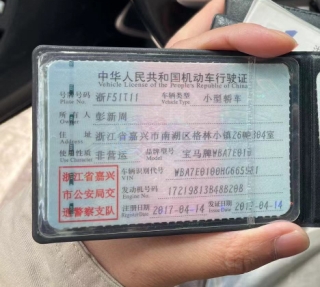 中华人民共和国机动车行驶证
Vehicle License of the People's Republic of China
号牌号码 浙F51T11 车辆类型 小型轿车
Plate No. Vehicle Type
所 人 彭新周
住 址 浙江省嘉兴市南湖区格林小镇26幢304室
使用性质 非营运 品牌型号 宝马牌WBA7E010
Use Character Model
浙江省嘉兴 车辆识别代号 WBA7E0100HG665581
VIN
市公安局交 发动机号码 17219813B48B20B
Engine No.
通警察支队 注册日期 2017-04-14 发证日期 2017-04-14
Register Date Issue Date